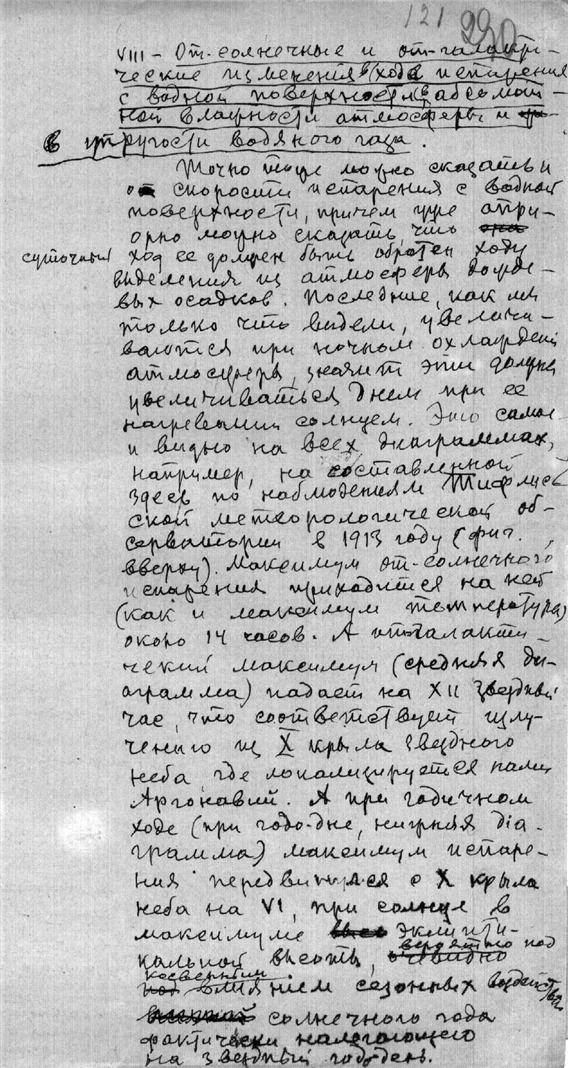 121 230
VIII – От-солнечные и от-галакти-
ческие изменения в ходе испарения
с водной поверхности, в абсолют-
ной влажности атмосферы и
в упругости водяного газа.
Точно тоже можно сказать и
о скорости испарения с водной
поверхности, причем уже апри-
орно можно сказать, что
суточный ход ее должен быть обратен ходу
выделения из атмосферы дожде-
вых осадков. Последние, как мы
только что видели, увеличи-
ваются при ночном охлаждении
атмосферы, значит эти должны
увеличиваться днем при ее
нагревании солнцем. Это самое
и видно на всех диаграммах,
например, на составленной
здесь по наблюдениям Тифлис-
ской метеорологической об-
серватории в 1913 году (фиг. ,
вверху). Максимум от-солнечного
испарения приходится на ней
(как и максимум температуры)
около 14 часов. А отгалакти-
ческий максимум (средняя ди-
аграмма) падает на XII звездный
час, что соответствует излу-
чению из X крыла звездного
неба где локализируется нами
Аргонавий. А при годичном
ходе (при годо-дне, нижняя диа-
грамма) максимум испаре-
ния передвинулся с X крыла
неба на VI, при солнце в
максимуме эклипти-
кальной высоты, вероятно под
косвенным
влиянием сезонных воздейств
солнечного года
фактически налегающего
на звездный годо-день.